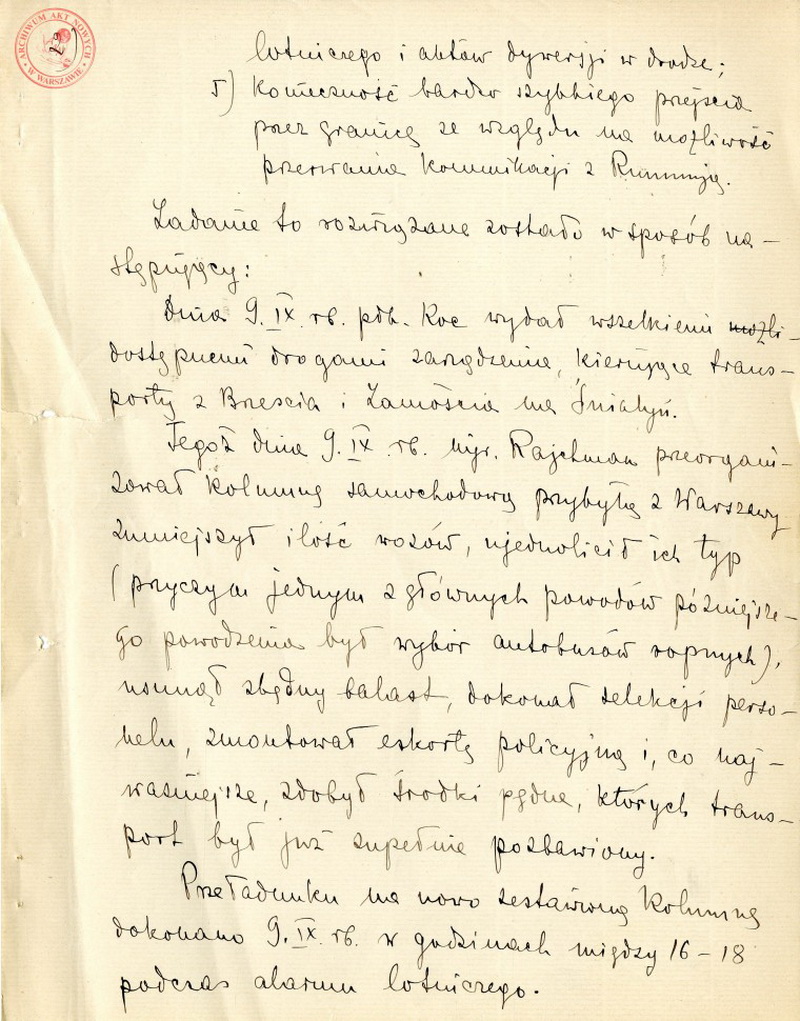 ARCHIWUM AKT NOWYCH
W WARSZAWIE
lotniczego i aktów dywersji w drodze;
5) Konieczność bardzo szybkiego przejścia
przez granicę ze względu na możliwość
przerwania komunikacji z Rumunją.
Zadanie to rozwiązane zostało w sposób na-
stępujący:
Dnia 9. IX. rb. płk. Koc wydał wszelkiemi możli-
dostępnemi drogami zarządzenia, kierujące trans-
porty z Brześcia i Zamościa na Śniatyń.
Tegoż dnia 9. IX. rb. mjr. Rajchman przeorgani-
zował kolumnę samochodową przybyłą z Warszawy
zmniejszył ilość wozów, ujednolicił ich typ
(przyczym jednym z głównych powodów późniejsze-
go powodzenia był wybór autobusów ropnych),
usunął zbędny balast, dokonał selekcji perso-
nelu, zmontował eskortę policyjną i, co naj-
ważniejsze, zdobył środki pędne, których trans-
port był już zupełnie pozbawiony.
Przeładunku na nowo zestawioną kolumnę
dokonano 9. IX. rb. w godzinach między 16-18
podczas alarmu lotniczego.